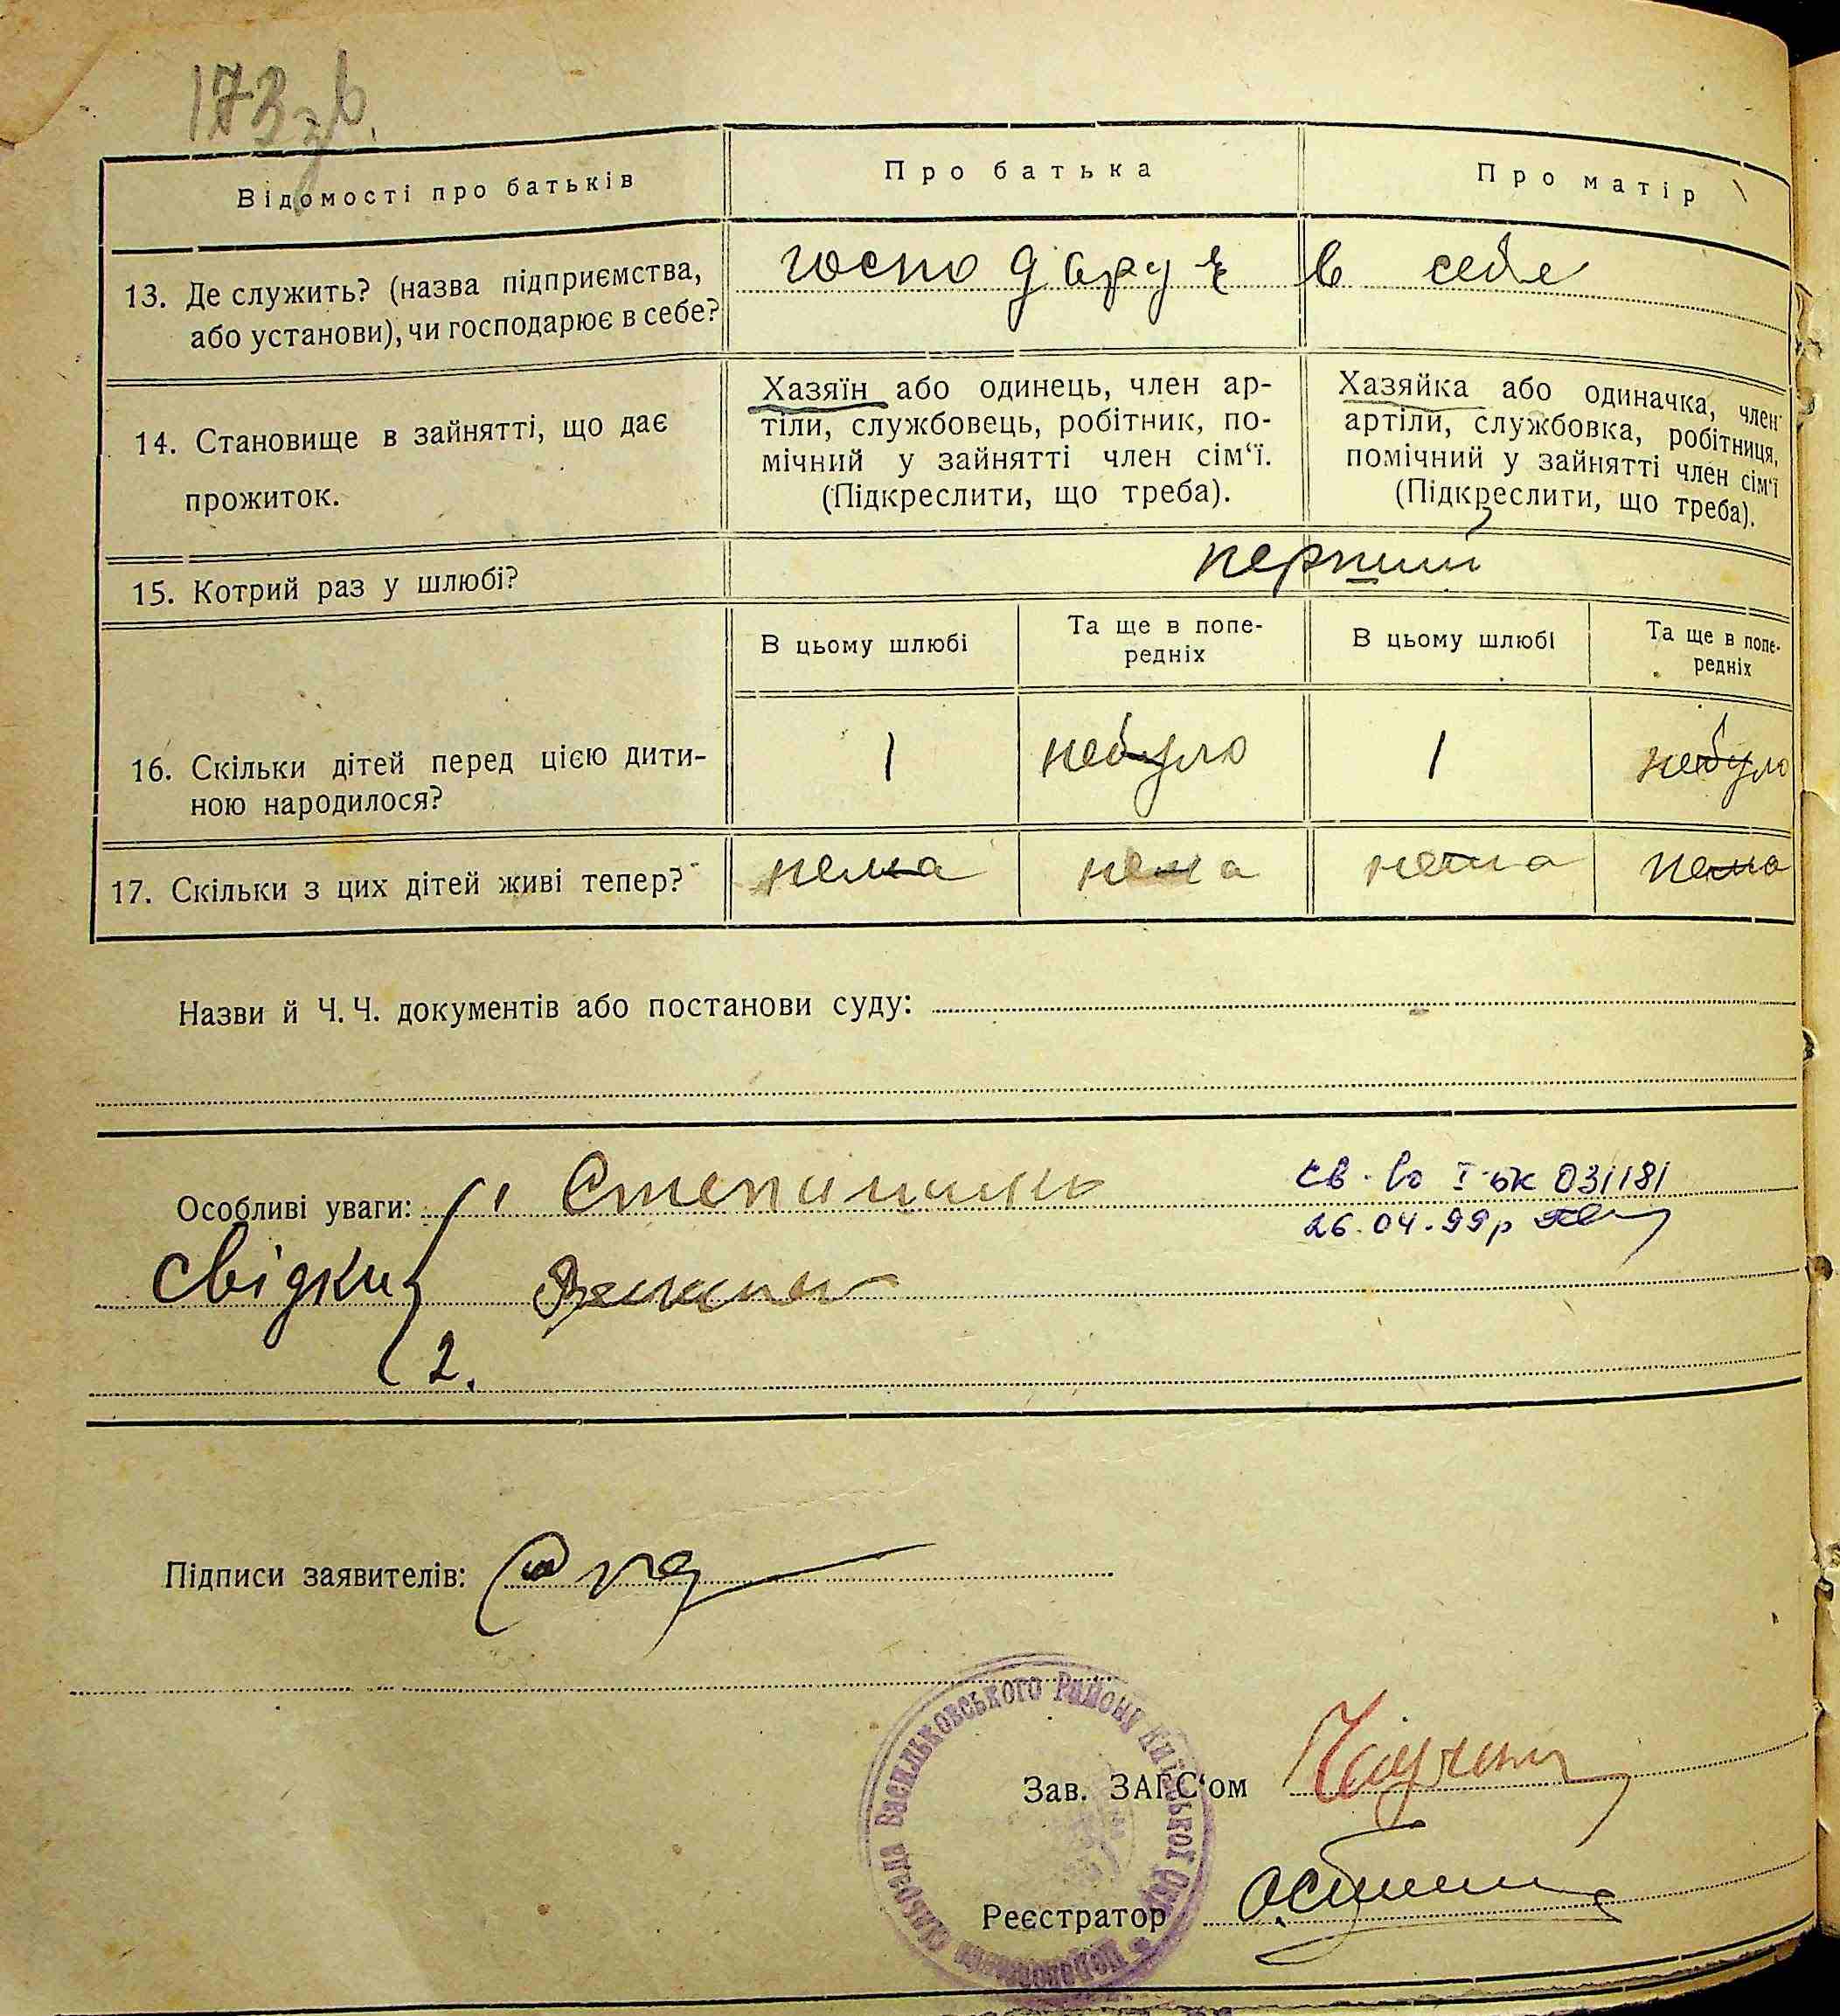 173 зв.
Відомості про батьків
Про батька
Про матір
13. Де служить? (назва підприємства,
або установи), чи господарює в себе?
господарує в себе
14. Становище в зайнятті, що дає
прожиток.
Хазяїн або одинець, член ар-
тіли, службовець, робітник, по-
мічний у зайнятті член сім‘ї.
(Підкреслити, що треба).
Хазяйка або одиначка, член
артіли, службовка, робітниця,
помічний у зайнятті член сім‘ї
(Підкреслити, що треба).
15. Котрий раз у шлюбі?
перший
В цьому шлюбі
Та ще в попе-
редніх
В цьому шлюбі
Та ще в попе-
редніх
16. Скільки дітей перед цією дити-
ною народилося?
1
небуло
1
небуло
17. Скільки з цих дітей живі тепер?
нема
нема
нема
нема
Назви й Ч. Ч. документів або постанови суду:
Особливі уваги: 1
св-во І-бк 031181
26.04.99р
свідки
2.
Підписи заявителів:
Зав. ЗАГС‘ом
Реєстратор
сільрада Васильковського Району Київської Округи